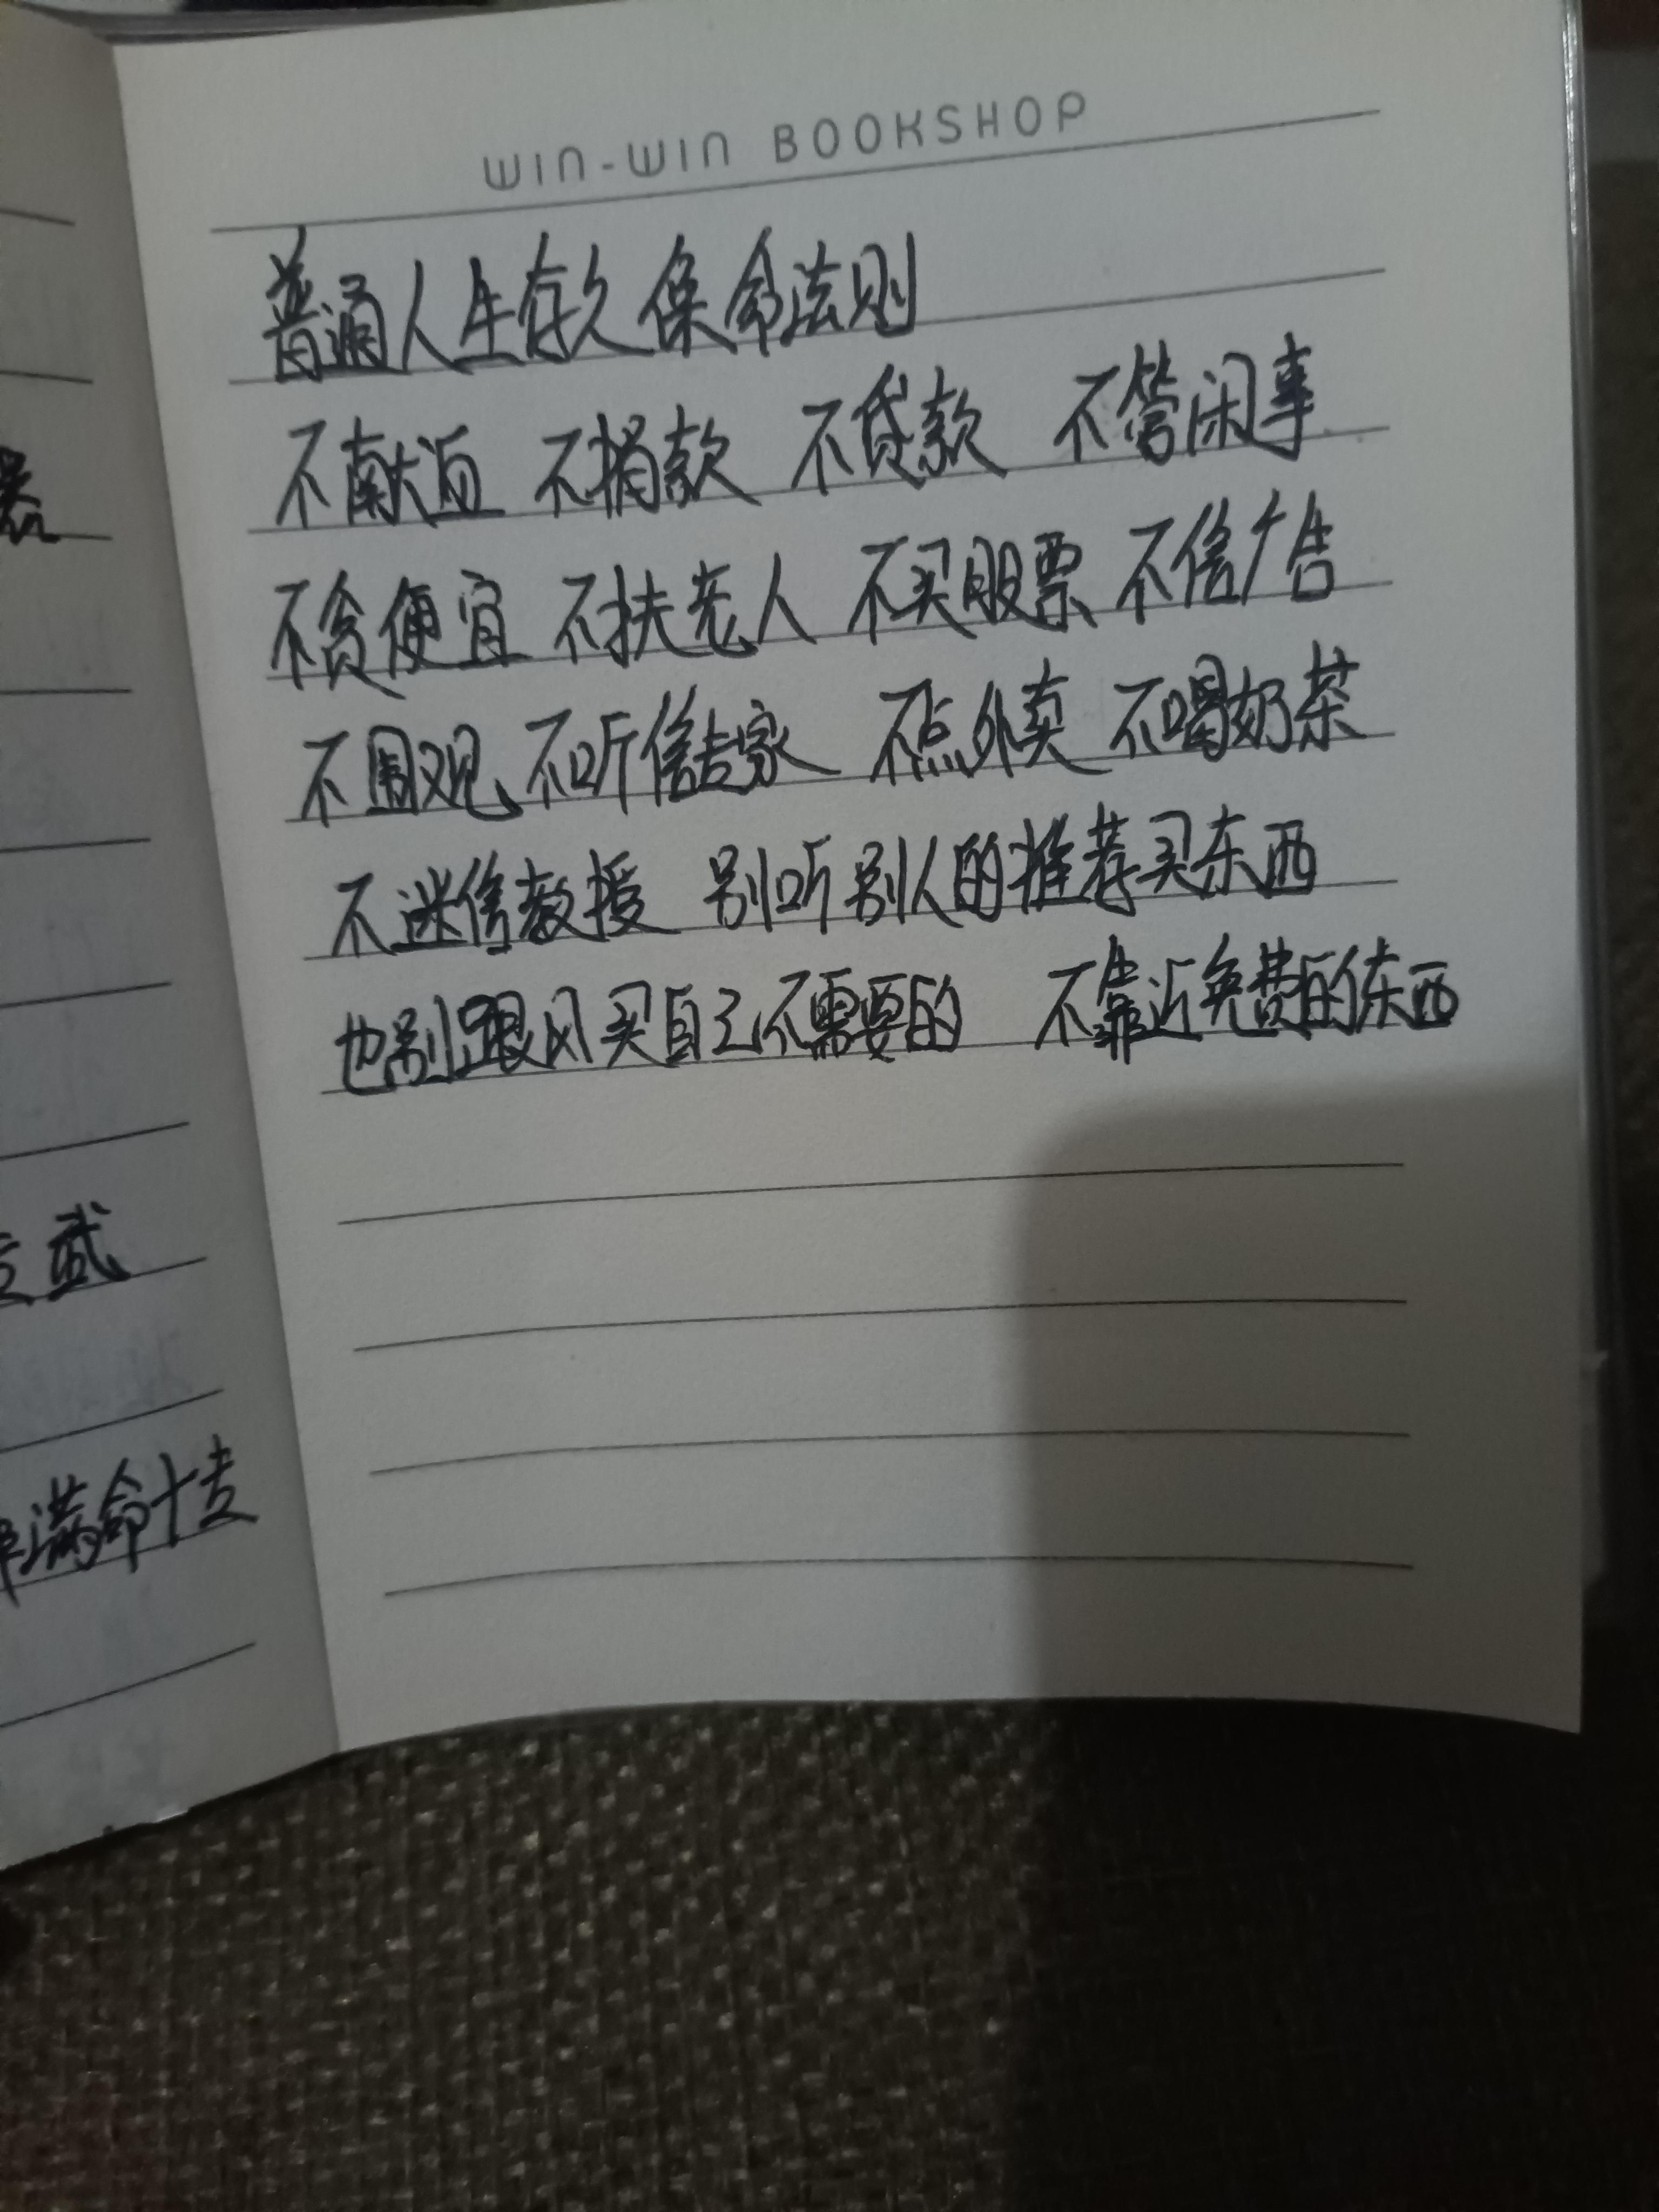 WIN-WIN BOOKSHOP
普通人生存久保命法则
不献血 不捐款 不贷款 不管闲事
不贪便宜 不扶老人 不买股票 不信广告
不围观 不听信专家 不点外卖 不喝奶茶
不迷信教授 别听别人的推荐买东西
也别跟风买自己不需要的 不靠近免费的东西
器
武
满命十支